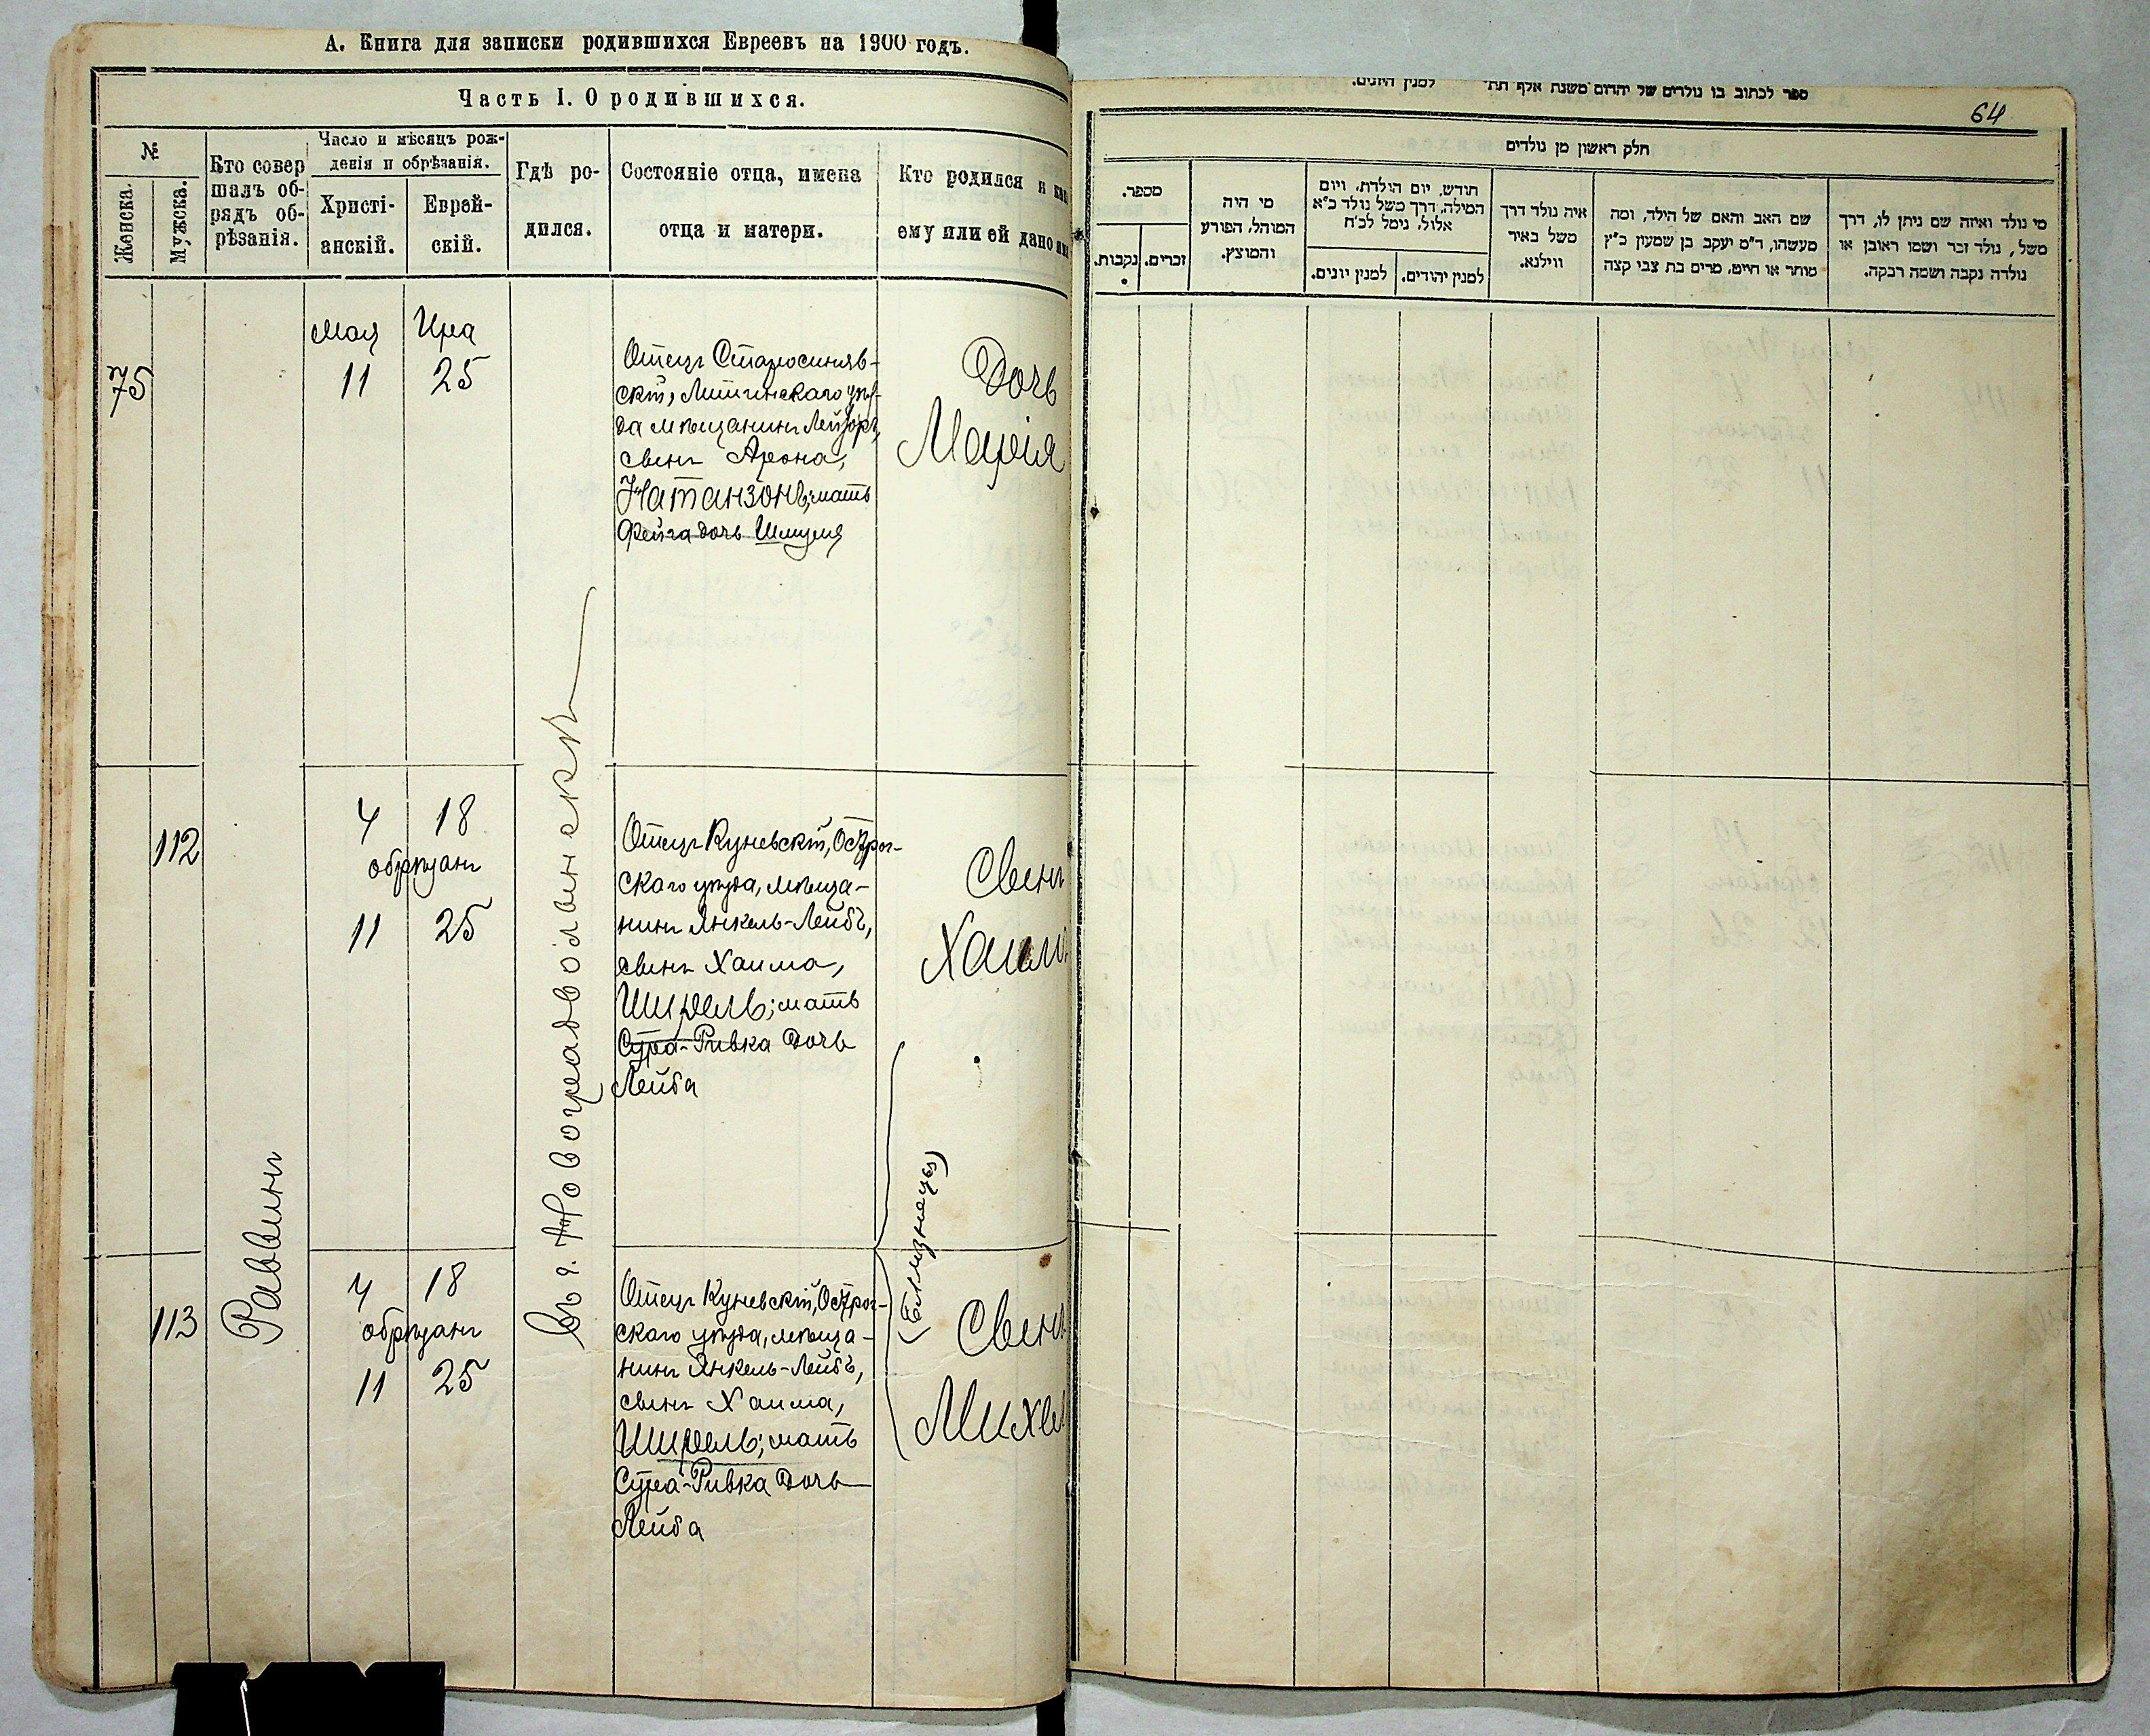 А. Книга для записки родившихся Евреевъ на 1900 годъ.
Часть I. О родившихся.
№
Женска.
Мужска.
Кто совер
шалъ об-
рядъ об-
рѣзанія.
Число и мѣсяцъ рож-
денія и обрѣзанія.
Христі-
анскій.
Еврей-
скій.
Гдѣ ро-
дился.
Состояніе отца, имена
отца и матери.
Кто родился и как
ему или ей дано им
75
Мая
11
Іира
25
Отецъ Старосиняв-
скій, Литинскаго уѣз-
да мѣщанинъ Лейзоръ,
сынъ Арона,
Натанзонъ; мать
Фейга дочь Шмуля
Дочь
Марія
112
4 18
обрѣзанъ
11 25
Отецъ Куневскій, Острог-
скаго уѣзда, мѣща-
нинъ Янкель-Лейбъ,
сынъ Хаима,
Шпрель; мать
Сура-Ривка дочь
Лейба
Сынъ
Хаим
113
Раввинъ
4 18
обрѣзанъ
11 25
Въ г. Новоградволынскѣ
Отецъ Куневскій, Острог-
скаго уѣзда, мѣща-
нинъ Янкель-Лейбъ,
сынъ Хаима,
Шпрель; мать
Сура-Ривка дочь
Лейба
(Близнецы)
Сынъ
Михел
ספר לכתוב בו נולדים של יהודים משנת אלף תת למנין היונים.
64
חלק ראשון מן נולדים
מספר.
נקבות.
זכרים.
מי היה
המוהל, הפורע
והמוצץ.
חודש, יום הולדת, ויום
המילה, דרך משל נולד כ"א
אלול, נימל לכ"ח
למנין יונים.
למנין יהודים.
איה נולד דרך
משל באיר
ווילנא.
שם האב והאם של הילד, ומה
מעשהו, ד"מ יעקב בן שמעין כ"ץ
סוחר או חייט, מרים בת צבי קצה
מי נולד ואיזה שם ניתן לו, דרך
משל, נולד זכר ושמו ראובן או
נולדה נקבה ושמה רבקה.